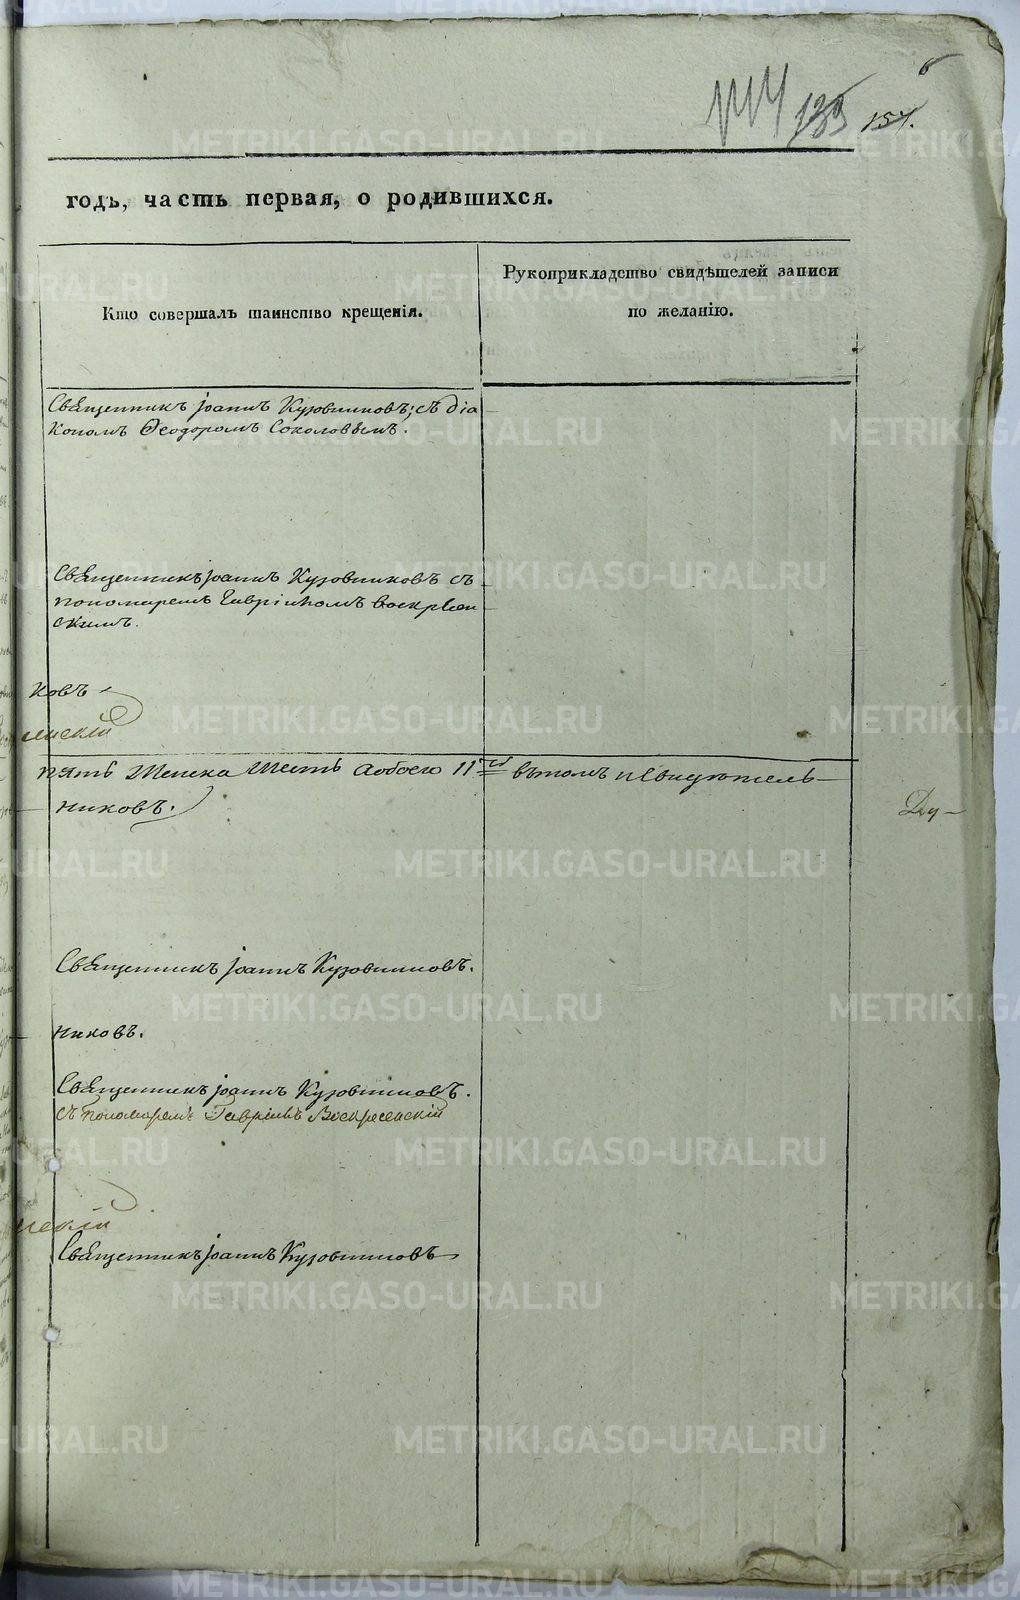 6
139 154.
годъ, часть первая, о родившихся.
Кто совершалъ таинство крещенія.
Рукоприкладство свидѣтелей записи
по желанію.
Священникъ Іоаннъ Кузовниковъ; съ діа
кономъ Ѳеодоромъ Соколовымъ.
Священникъ Іоаннъ Кузовниковъ съ
пономаремъ Гавріиломъ Воскресен
скимъ.
ковъ
енскій
пять женска шесть а обоего 11ть въ томъ и свидѣтель
никовъ.
Ду
Священникъ Іоаннъ Кузовниковъ.
никовъ.
Священникъ Іоаннъ Кузовниковъ.
съ пономаремъ Гавріилъ Воскресенскій
нскій
Священникъ Іоаннъ Кузовниковъ
METRIKI.GASO-URAL.RU